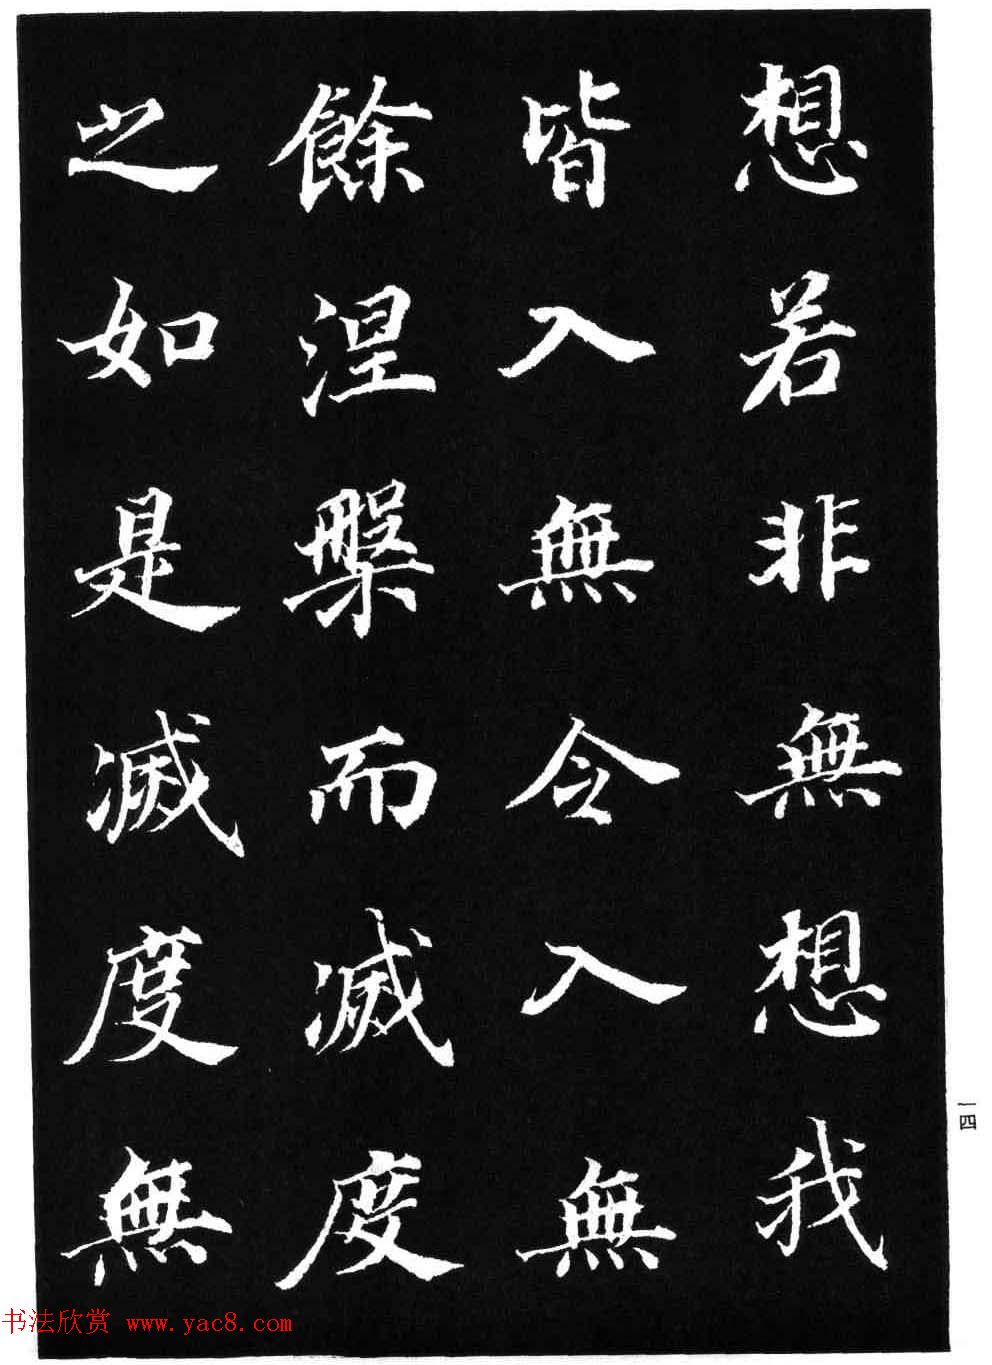 想若非無想我
皆入無令入無
餘涅槃而滅度
之如是滅度無
一四
书法欣赏 www.yac8.com